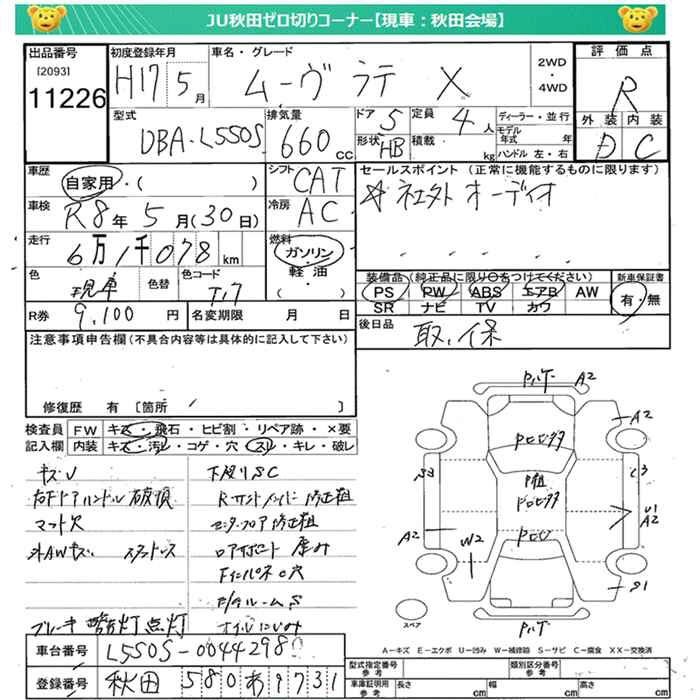 JU秋田ゼロ切りコーナー【現車：秋田会場】
出品番号
[2093]
11226
初度登録年月
H17 5 月
車名・グレード
ムーヴ ラテ X
2WD
・
4WD
評価点
R
外装 内装
D C
型式
DBA-L550S
排気量
660 cc
ドア 5
形状 HB
定員 4 人
積載 kg
ディーラー・並行
モデル年式 年
ハンドル 左・右
車歴
自家用・( )
シフト CAT
セールスポイント (正常に機能するものに限ります)
☆社外オーディオ
車検
R8年 5月(30日)
冷房 AC
走行
6万1千078 km
燃料
ガソリン
軽油
( )
色
現車
色替
色コード
T17
装備品(純正品に限り○をつけてください)
PS PW ABS エアB AW
SR ナビ TV カワ
新車保証書
有・無
R券 9,100 円
名変期限 月 日
後日品
取、保
注意事項申告欄(不具合内容等は具体的に記入して下さい)
修復歴 有 [箇所 ]
検査員 記入欄
FW キズ・飛石・ヒビ割・リペア跡・×要
内装 キズ・汚レ・コゲ・穴・スレ・キレ・破レ
キズU
右Fドアハンドル破損
マット欠
外AWキズ スタッドレス
ブレーキ警告灯点灯
下廻りSC
Rサイドメンバー修正粗
センターフロア修正粗
ロアサポート歪み
FインパネO穴
オイルにじみ
A2
A2
S3
C3
U1
A2
A2
W2
S1
スペア
A－キズ E－エクボ U－凹み W－補修跡 S－サビ C－腐食 XX－交換済
車台番号
L550S-0044298
登録番号
秋田 580 あ 9731
型式指定番号 参考
類別区分番号 参考
車庫証明用 参考
長さ cm 幅 cm 高さ cm